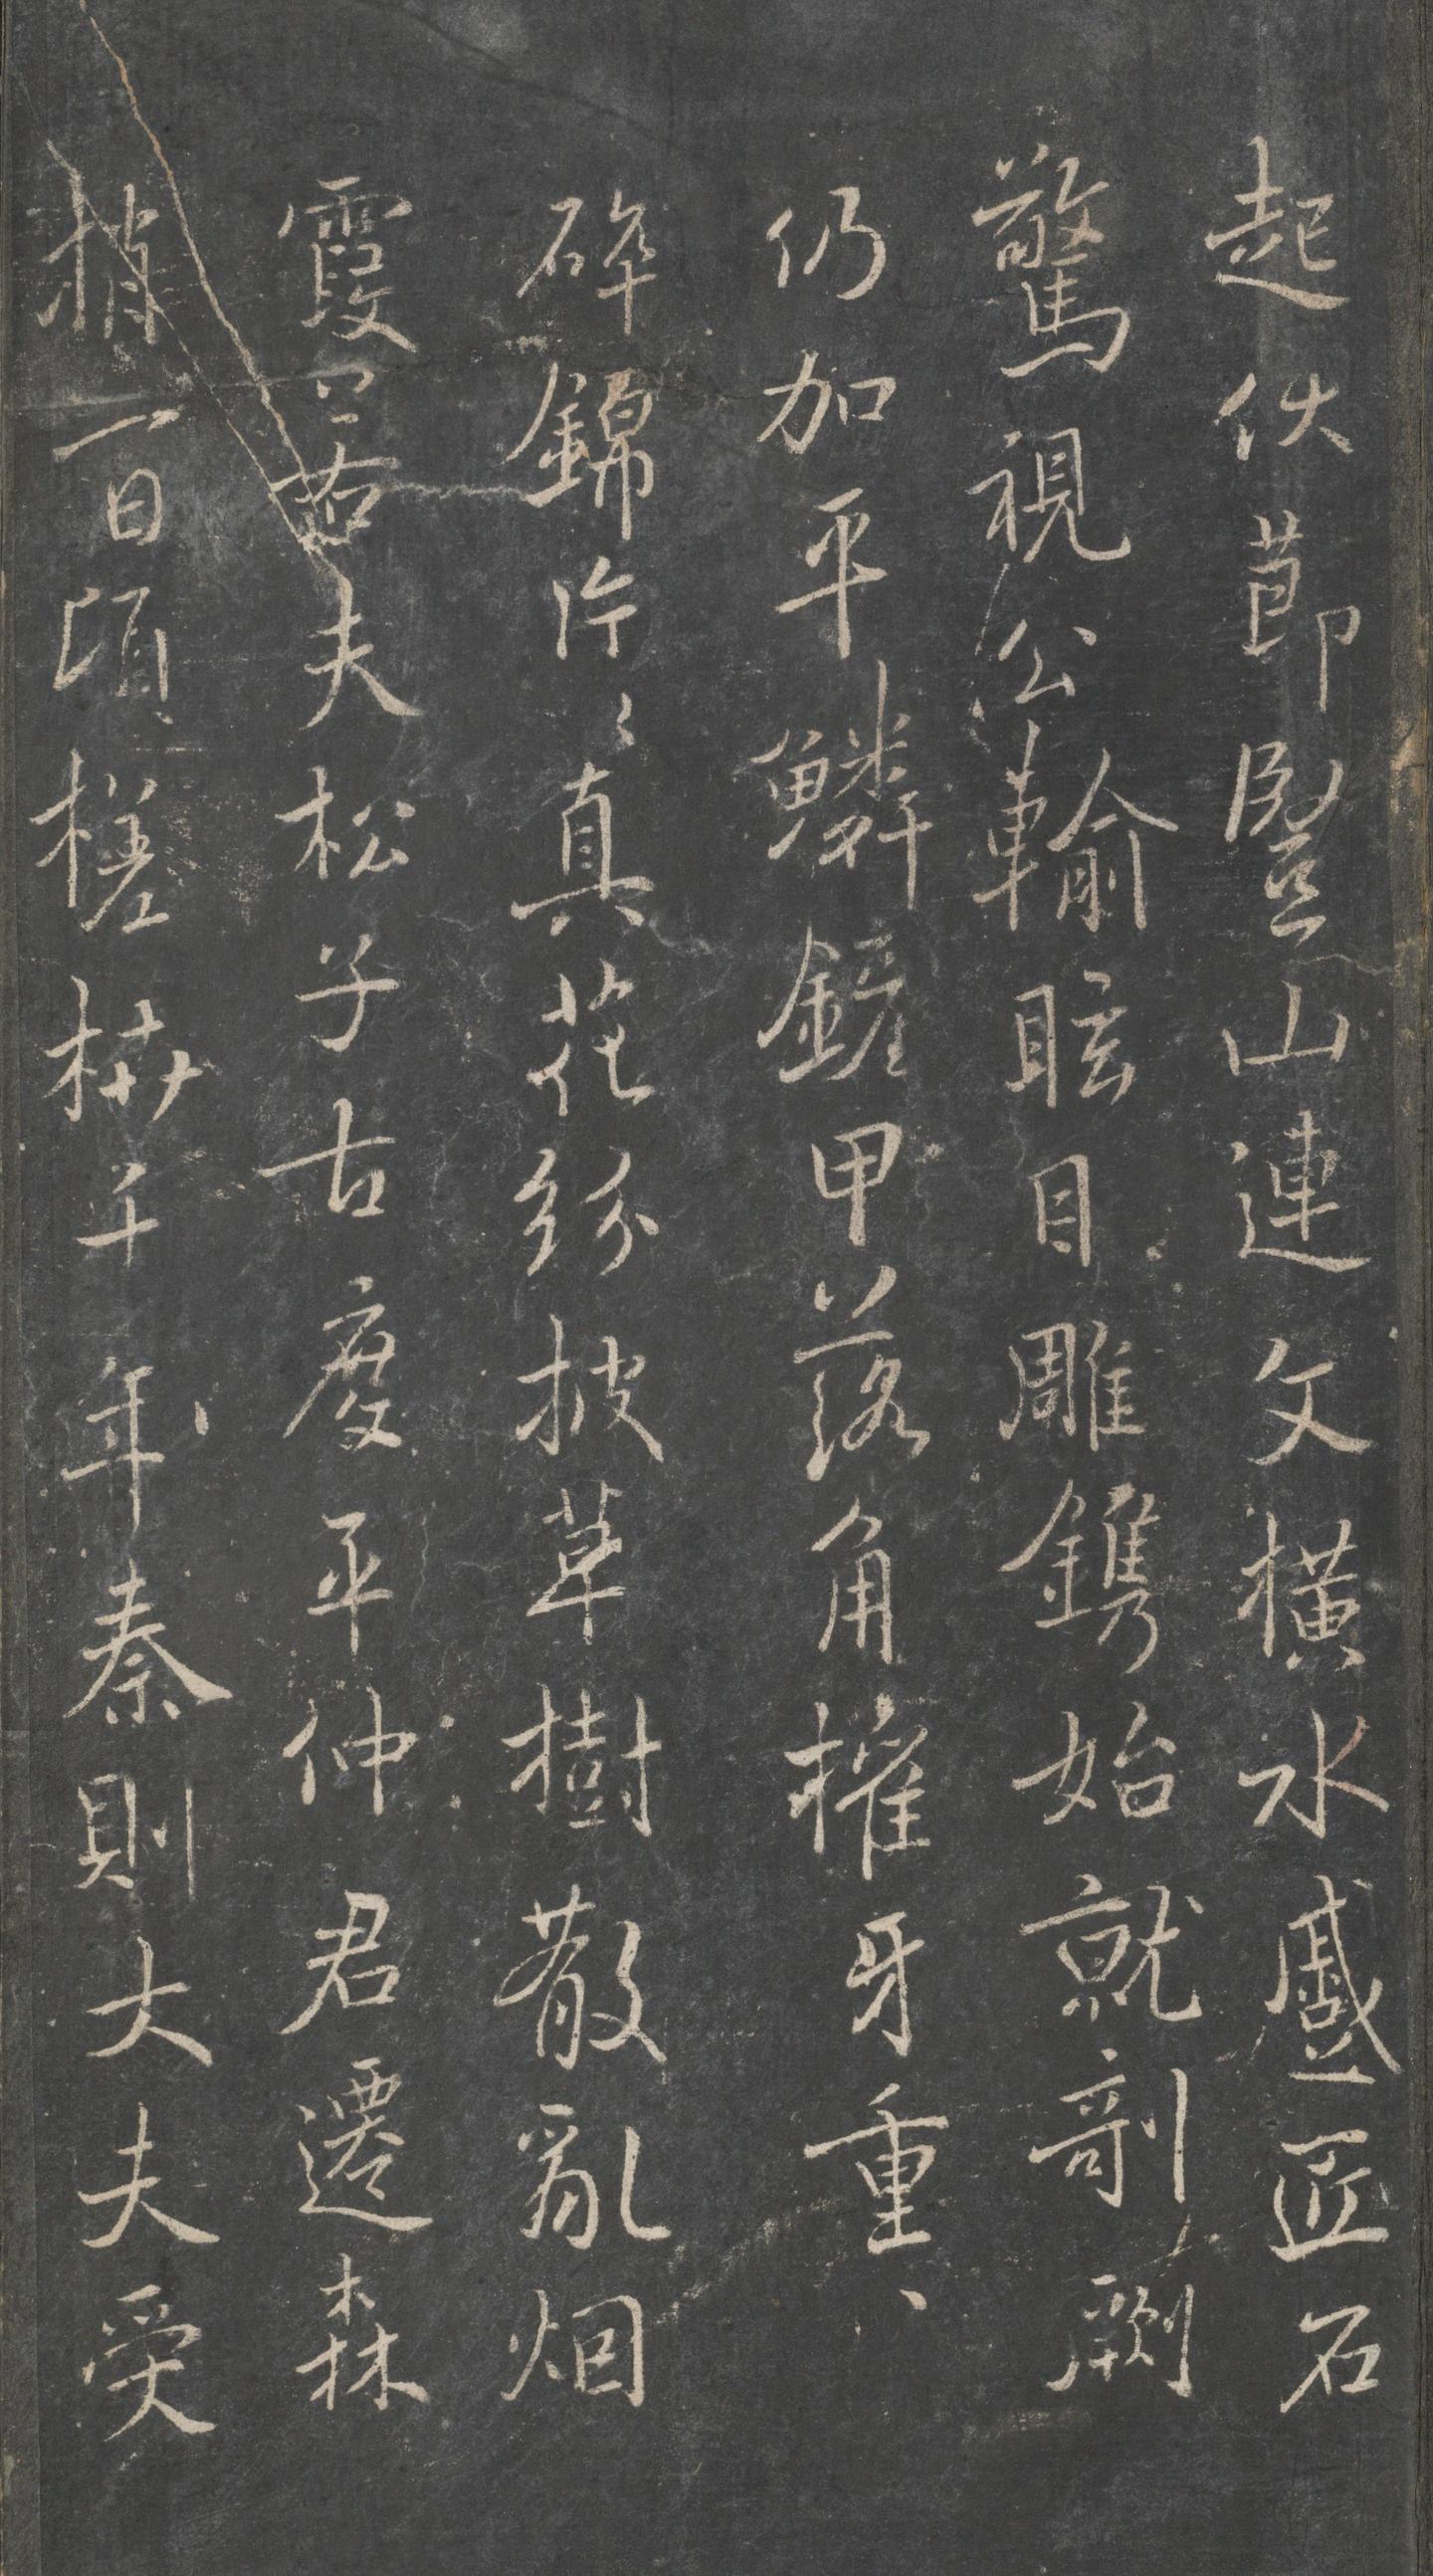 起伏莭竪山連文橫水蹙匠石
驚視公輸眩目雕鐫始就剞劂
仍加平鱗鏟甲落角摧牙重〻
碎錦片〻真花紛披草樹散亂烟
霞若夫松子古度平仲君遷森
梢百頃槎枿千年秦則大夫受